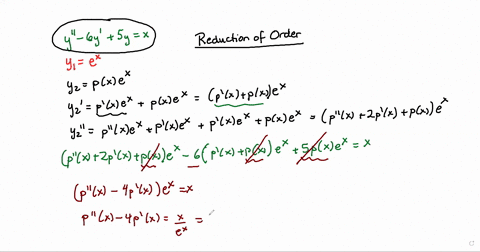 y'' - 6y' + 5y = x
Reduction of Order
y₁ = eˣ
y₂ = p(x)eˣ
y₂' = p'(x)eˣ + p(x)eˣ = (p'(x) + p(x))eˣ
y₂'' = p''(x)eˣ + p'(x)eˣ + p'(x)eˣ + p(x)eˣ = (p''(x) + 2p'(x) + p(x))eˣ
(p''(x) + 2p'(x) + p(x))eˣ - 6(p'(x) + p(x))eˣ + 5p(x)eˣ = x
(p''(x) - 4p'(x))eˣ = x
p''(x) - 4p'(x) = x/eˣ =